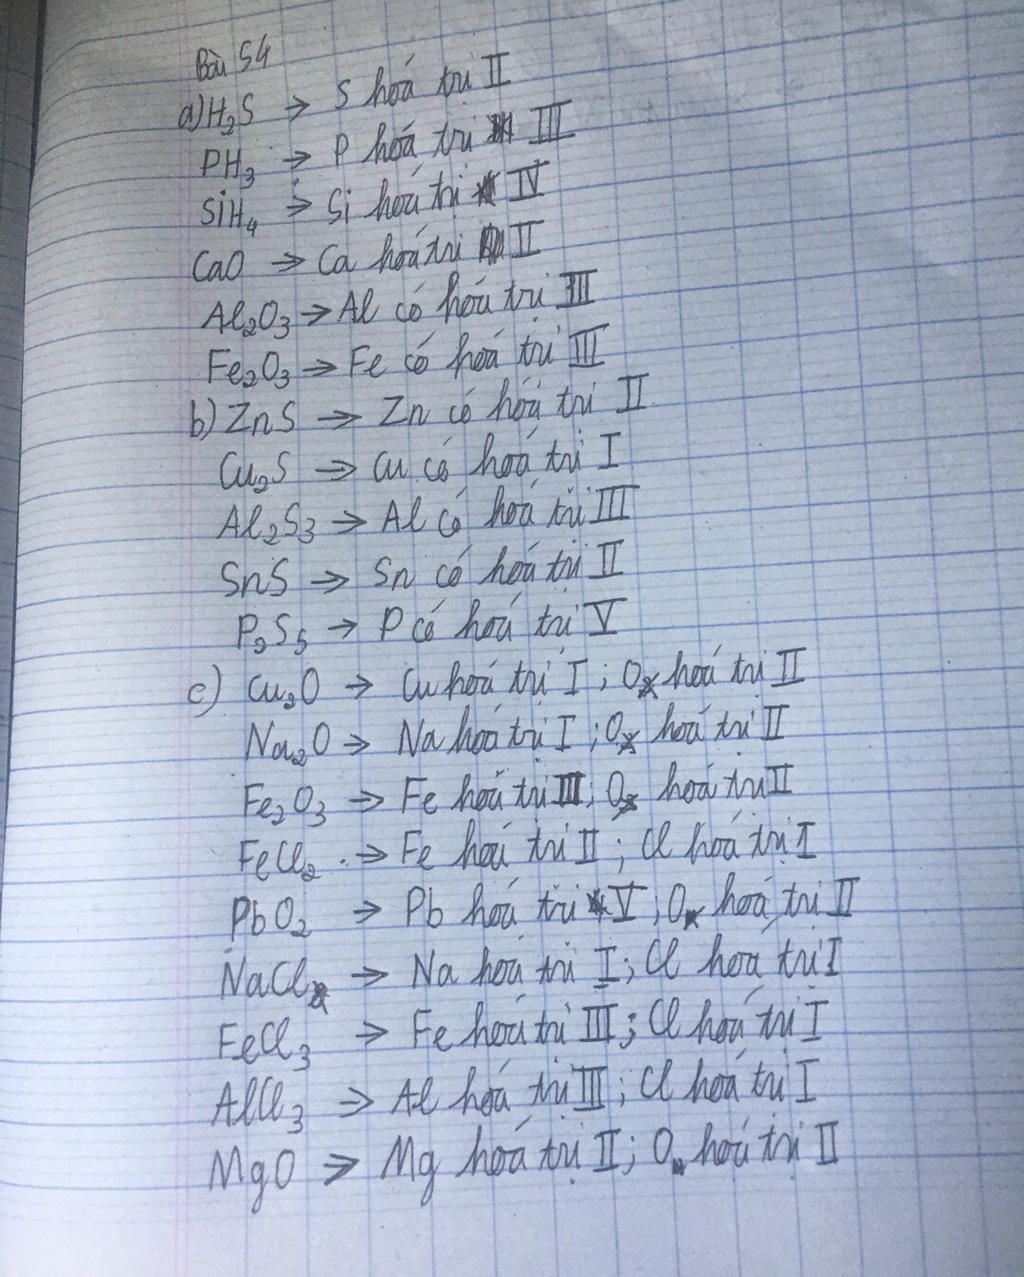 Bài 54
a) H₂S → S hoá trị II
PH₃ → P hoá trị III
SiH₄ → Si hoá trị IV
CaO → Ca hoá trị II
Al₂O₃ → Al có hoá trị III
Fe₂O₃ → Fe có hoá trị III
b) ZnS → Zn có hoá trị II
Cu₂S → Cu có hoá trị I
Al₂S₃ → Al có hoá trị III
SnS → Sn có hoá trị II
P₂S₅ → P có hoá trị V
c) Cu₂O → Cu hoá trị I ; O hoá trị II
Na₂O → Na hoá trị I ; O hoá trị II
Fe₂O₃ → Fe hoá trị III ; O hoá trị II
FeCl₂ → Fe hoá trị II ; Cl hoá trị I
PbO₂ → Pb hoá trị V ; O hoá trị II
NaCl → Na hoá trị I ; Cl hoá trị I
FeCl₃ → Fe hoá trị III ; Cl hoá trị I
AlCl₃ → Al hoá trị III ; Cl hoá trị I
MgO → Mg hoá trị II ; O hoá trị II